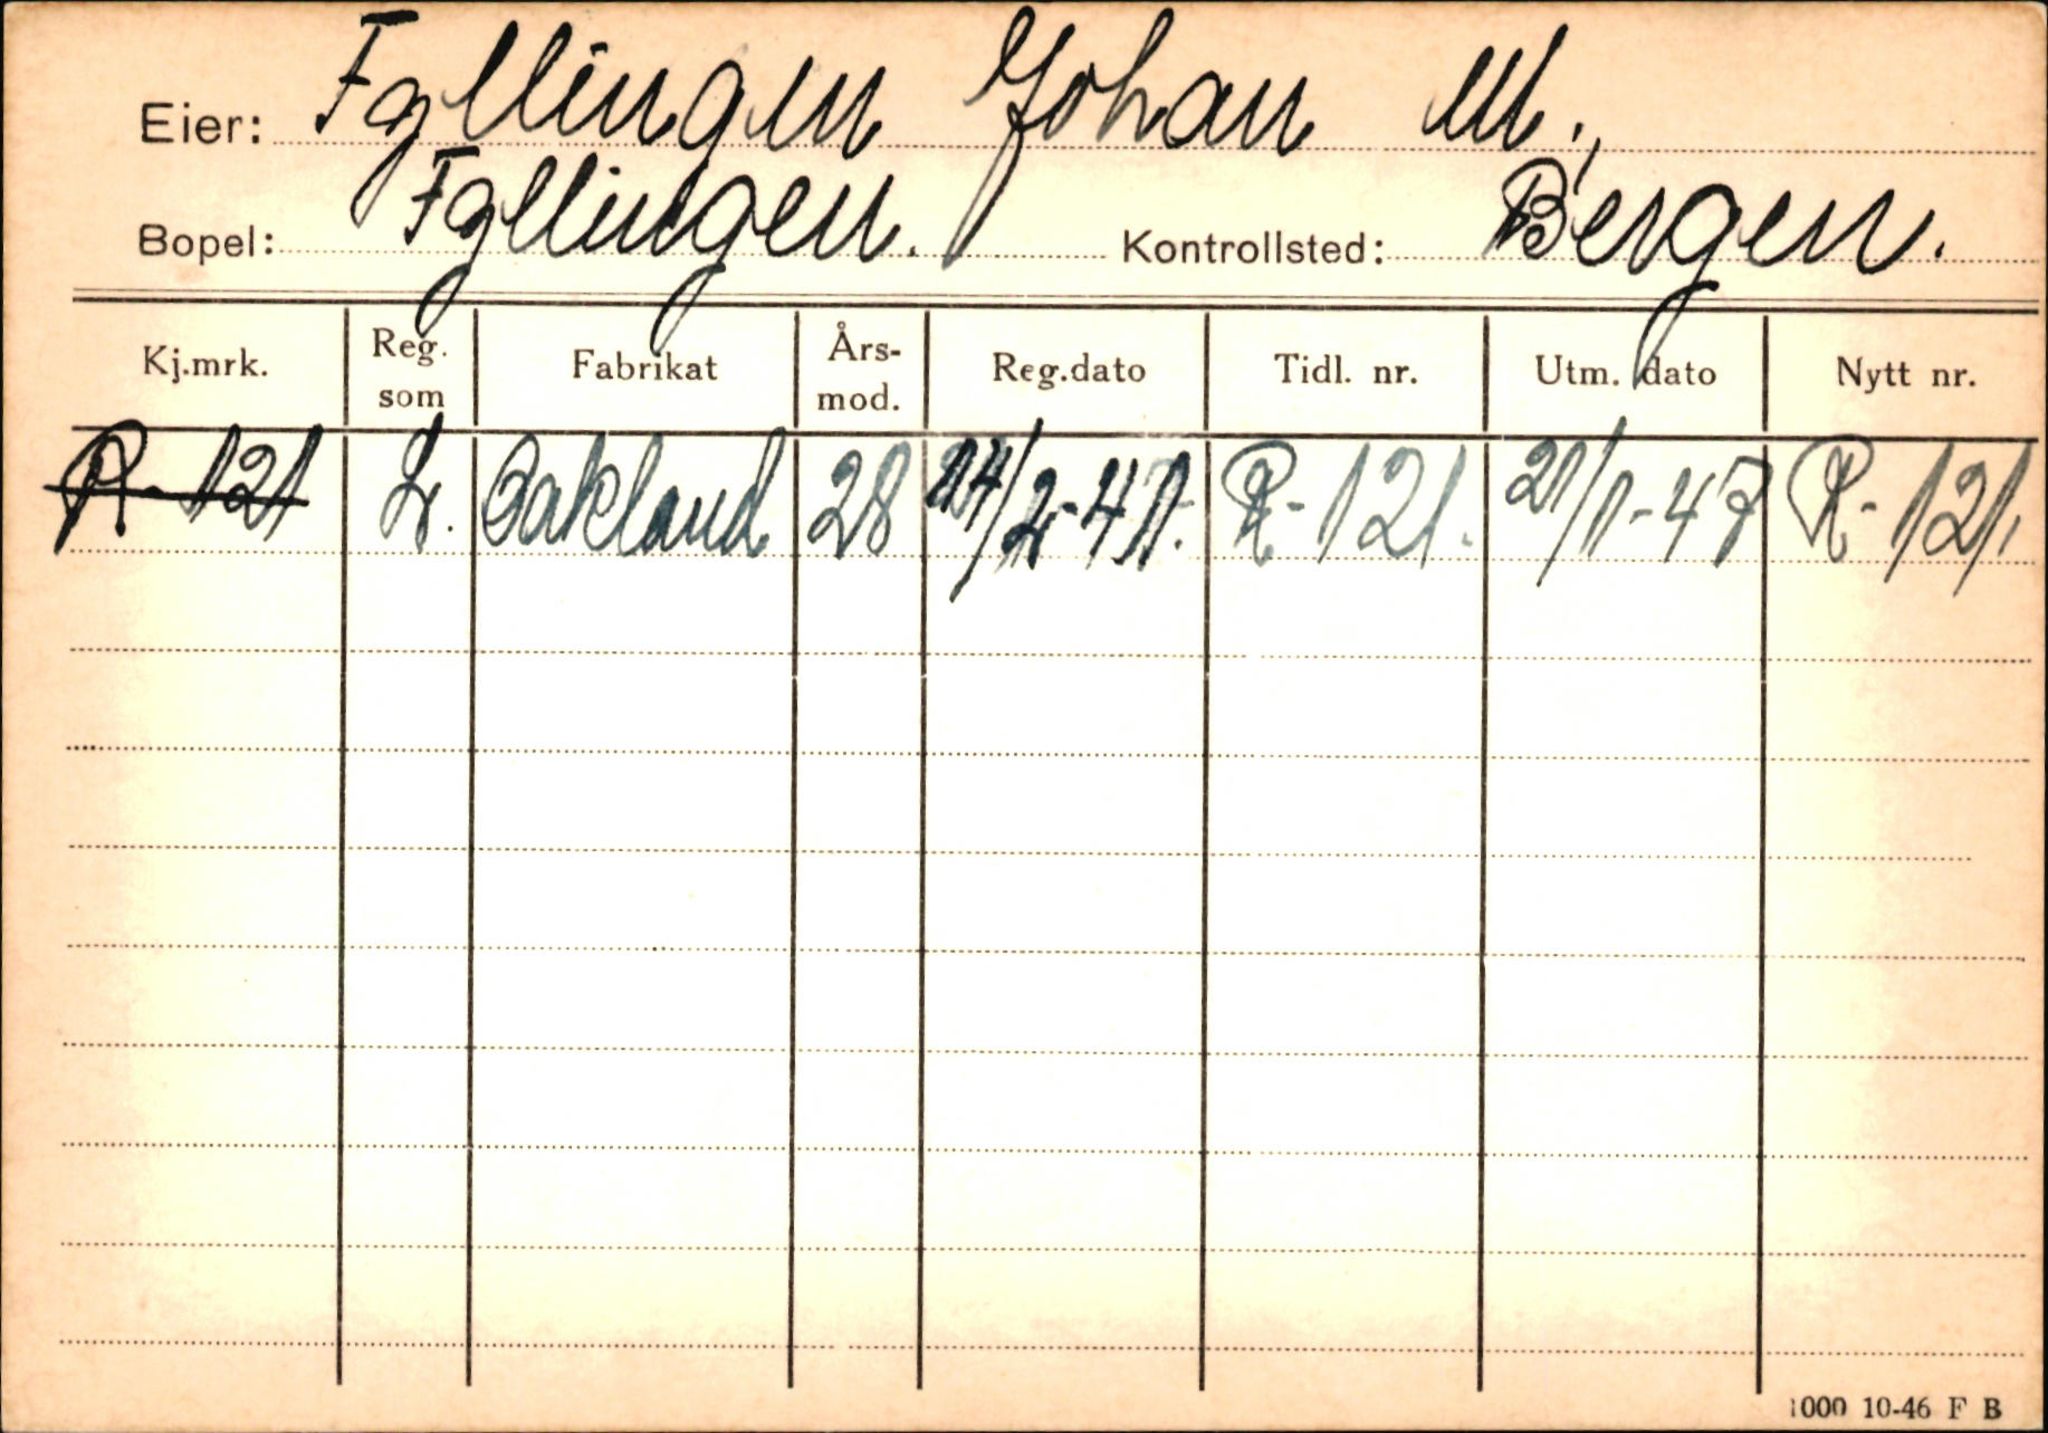 Eier: Fyllingen Johan M.,
Bopel: Fyllingen. Kontrollsted: Bergen.
Kj.mrk. Reg. som Fabrikat Års-mod. Reg.dato Tidl. nr. Utm. dato Nytt nr.
R-121 L. Oakland 28 R-121. 21/1-47 R-121.
1000 10-46 F B